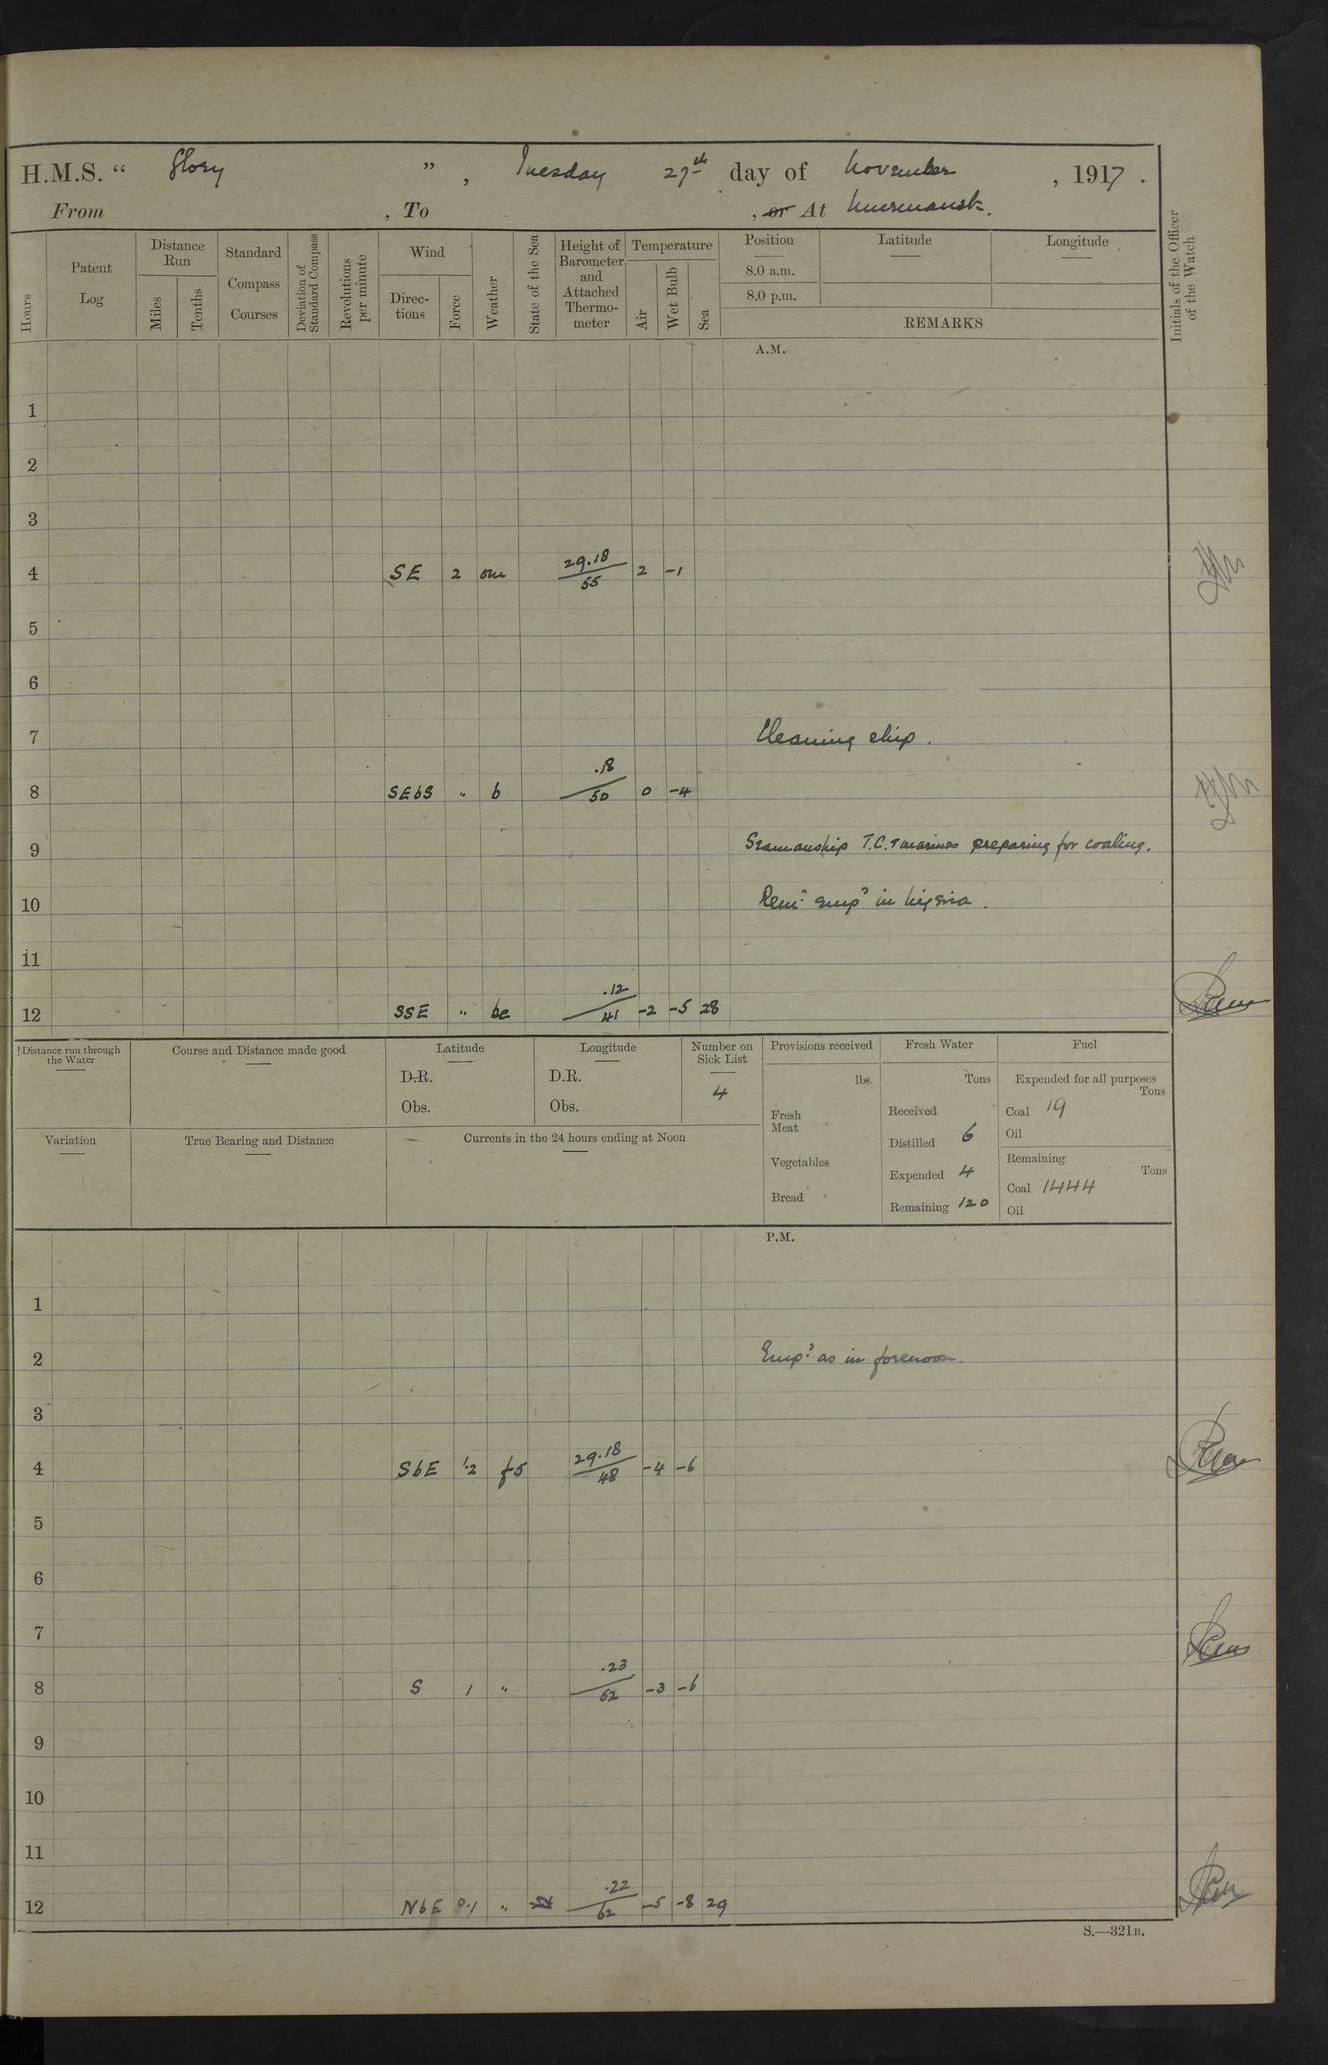 H.M.S. “ Glory ” , Tuesday 27th day of November , 1917 .
From , To , or At Murmansk.
Hours
Patent Log
Distance Run
Miles
Tenths
Standard Compass Courses
Deviation of Standard Compass
Revolutions per minute
Wind
Direc-tions
Force
Weather
State of the Sea
Height of Barometer and Attached Thermo-meter
Temperature
Air
Wet Bulb
Sea
Position
8.0 a.m.
8.0 p.m.
Latitude
Longitude
REMARKS
Initials of the Officer of the Watch
A.M.
1
2
3
4 SE 2 om 29.18/55 2 -1
5
6
7 Cleaning ship.
8 SEbS " b .18/50 0 -4
9 Seamanship T.C. & marines preparing for coaling.
10 Remr empd in
11
12 SSE " bc .12/41 -2 -5 28
Distance run through the Water
Course and Distance made good
Latitude
D.R.
Obs.
Longitude
D.R.
Obs.
Number on Sick List
4
Provisions received
lbs.
Fresh Meat
Vegetables
Bread
Fresh Water
Tons
Received
Distilled 6
Expended 4
Remaining 120
Fuel
Expended for all purposes
Tons
Coal 19
Oil
Remaining
Tons
Coal 1444
Oil
Variation
True Bearing and Distance
Currents in the 24 hours ending at Noon
P.M.
1
2 Empd as in forenoon.
3
4 SbE 1.2 fs 29.18/48 -4 -6
5
6
7
8 S 1 " .23/62 -3 -6
9
10
11
12 NbE 0.1 " .22/62 -5 -8 29
S.—321B.